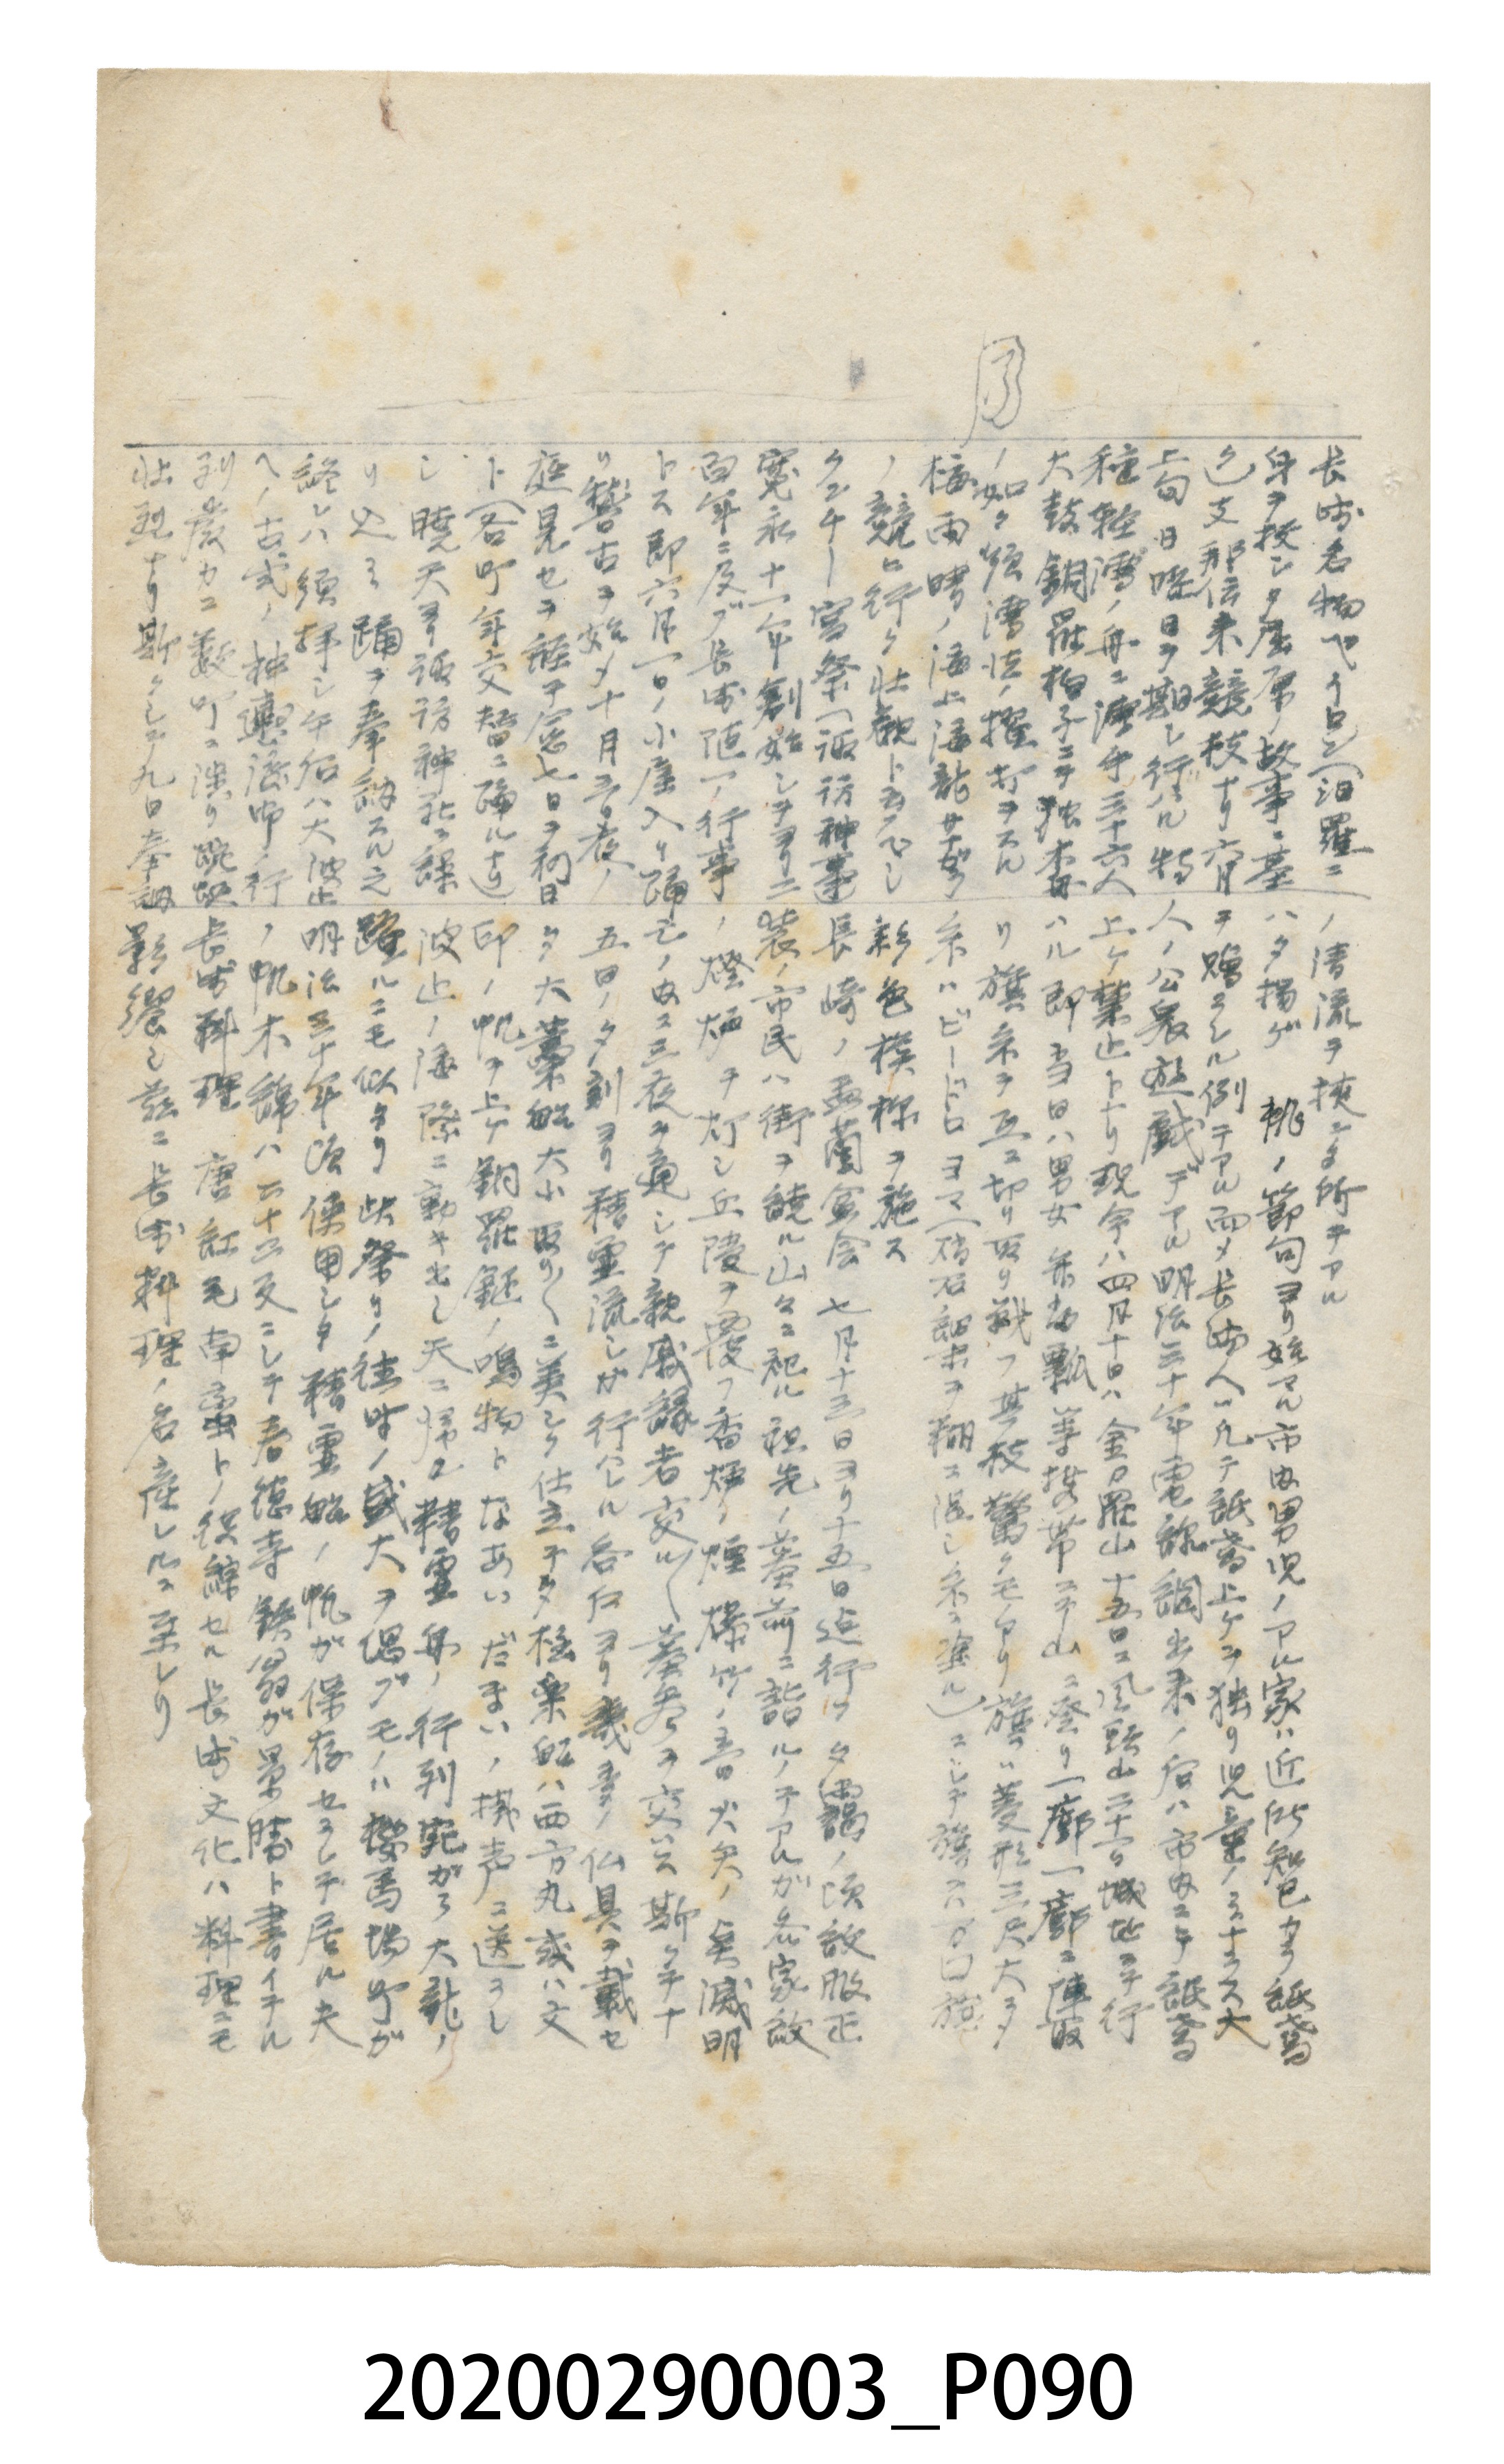 長崎名物ペイロン(汨羅ニ
身ヲ投シタ屈原ノ故事ニ基
ク)支那伝来競技ナリ六月
上旬日曜日ヲ期シ行ハル特
種軽漕ノ舟ニ漕手三十六人
大鼓銅羅拍子ニテ独木舟
ノ如ク頻漕法ノ櫂打ヲスル
梅雨晴ノ海上海龍サナガラ
ノ競ヒ行ク壮観ト云フベシ
クンチー 宮祭(諏訪神事
寛永十一年創始シテヨリ三
百年ニ及ブ長崎随一ノ行事
トス即六月一日ノ小屋入リ踊
リ稽古ヲ始メ十月三日夜ノ
庭見セヲ経テ 七日ヲ初日
ト(各町年交替ニ踊ルナリ)
シ暁天ヨリ諏訪神社ニ繰
リ込ミ踊ヲ奉納スル之
終レハ 午后ハ大波止
ヘノ古式ノ神輿渡御ノ行
列嚴カニ数町ニ渉リ蜿蜒
壮観ナリ斯クシテ九日奉納
ノ清流ヲ挾シタ所テアル
ハタ揚ゲ 桃ノ節句ヨリ始マル市内男児ノアル家ハ近所知己カラ紙鳶
ヲ贈ラレル例テアル而メ長崎人ハ凡テ紙鳶上ケヲ独リ児童ノミナラス大
人ノ公衆遊戯デアル明治三十年電線網出来ノ后ハ市内ニテ紙鳶
上ケ禁止トナリ現今ハ四月十日ハ金比羅山十五日ニ風頭山二十九日城址ニテ行
ハル即当日ハ男女弁当瓢箪携帯ニテ山ニ登リ一廓一廓ニ陣取
リ旗糸ヲ互ニ切リ取リ戦フ其技驚クモノアリ旗ハ菱形三尺大ヨリ
糸ハビードロヨマ(硝石細末ヲ糊ニ混シ糸ニ塗ル)ニシテ旗ハ 白旗
彩色模様ヲ施ス
長崎ノ盂蘭盆会 七月十三日ヨリ十五日迄行フ夕靄ノ頃紋服正
装ノ市民ハ街ヲ繞ル山々ニ祀ル祖先ノ墓前ニ詣ルノテアルガ各家紋
ノ燈炉ヲ灯シ丘陵ヲ覆フ香炉ノ煙爆竹ノ音火矢ノ 滅明
ノ内ニ三夜ヲ通シテ親戚縁者交ル〱墓参ヲ交ハス斯クテ十
五日ノ夕刻ヨリ精霊流シガ行ハレル各町ヨリ幾多ノ仏具ヲ載セ
タ大藁船大小取リ〱ニ美シク仕立テタ極楽船ハ西方丸或ハ文
印ノ帆ヲ上ケ銅羅鉦ノ鳴物トなあいだまいノ掛声ニ送ラレ
波止ノ海際ニ動キ出シ天ニ帰ル精霊舟ノ行列宛がラ大龍ノ
躍ルニモ似タリ此祭リノ往時ノ盛大ヲ偲ブモノハ櫻馬場町ガ
明治三十年頃使用シタ精霊船ノ帆が保存セラレテ居ル夫
ノ帆木綿ハ六十三反ニシテ春徳寺鉄翁が景勝ト書イテル
長崎料理 唐紅毛南蛮トノ 綜セル長崎文化ハ料理ニモ
影響シ茲ニ長崎料理ノ名産レルニ至レリ
20200290003_P090